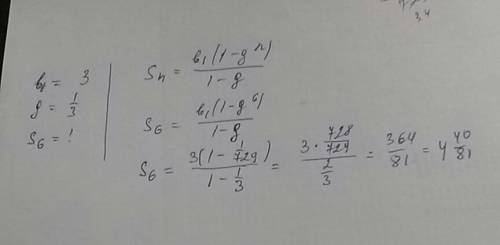 3,4
b₁ = 3
g = 1/3
S₆ = !
Sₙ = b₁(1-gⁿ)/(1-g)
S₆ = b₁(1-g⁶)/(1-g)
S₆ = 3(1-1/729)/(1-1/3) = (3·728/729)/(2/3) = 364/81 = 4 40/81